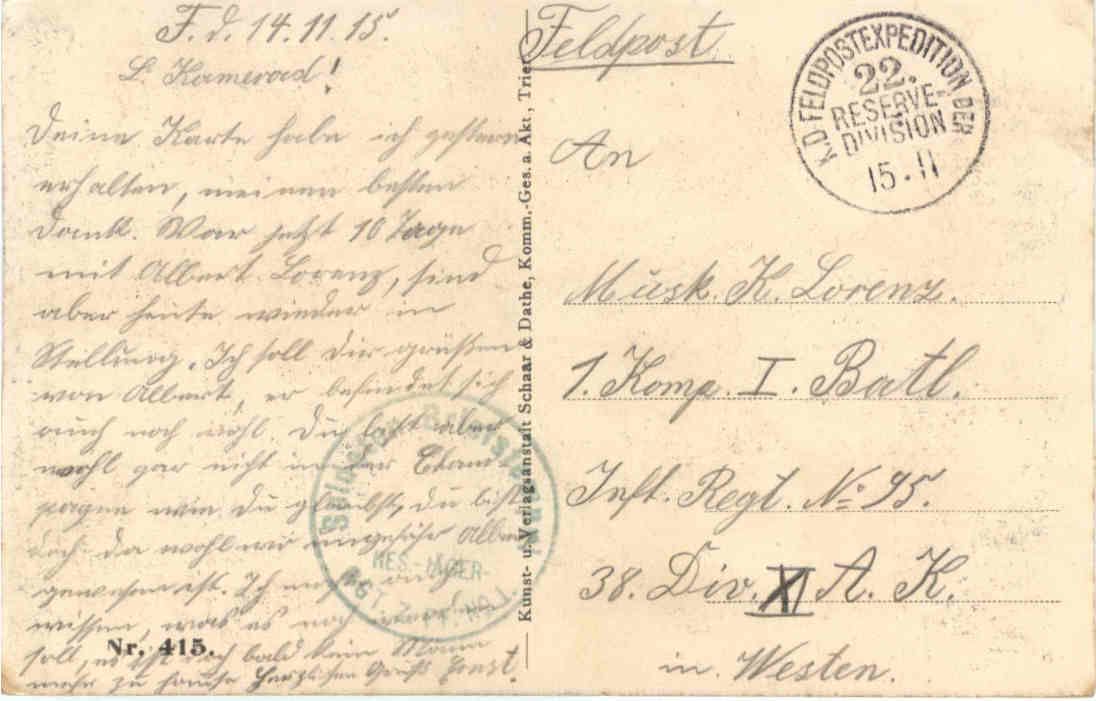 F. d. 14.11.15.
L. Kamerad!
Deine Karte habe ich gestern
erhalten, meinen besten
Dank. War jetzt 10 Tage
mit Albert Lorenz, sind
aber heute wieder in
Stellung. Ich soll Dir grüßen
von Albert, er befindet sich
auch noch wohl. Du bist aber
wohl gar nicht in der Cham-
pagne wie Du glaubst, Du bist
doch da wohl wo ungefähr Albert
gewesen ist. Ich auch
wissen, was es noch
soll, es ist doch bald kein Mann
mehr zu Hause Herzlichen Gruß Ernst.
Nr. 415.
Soldaten Briefstempel
RES.-JÄGER-
BAT. No. 1.
Kunst- u. Verlagsanstalt Schaar & Dathe, Komm.-Ges. a. Akt., Trier
Feldpost
K.D. FELDPOSTEXPEDITION DER
22.
RESERVE-
DIVISION
15.11
An
Musk. K. Lorenz.
1. Komp. I. Batl.
Inft. Regt. No 95.
38. Div. XI A. K.
in Westen.